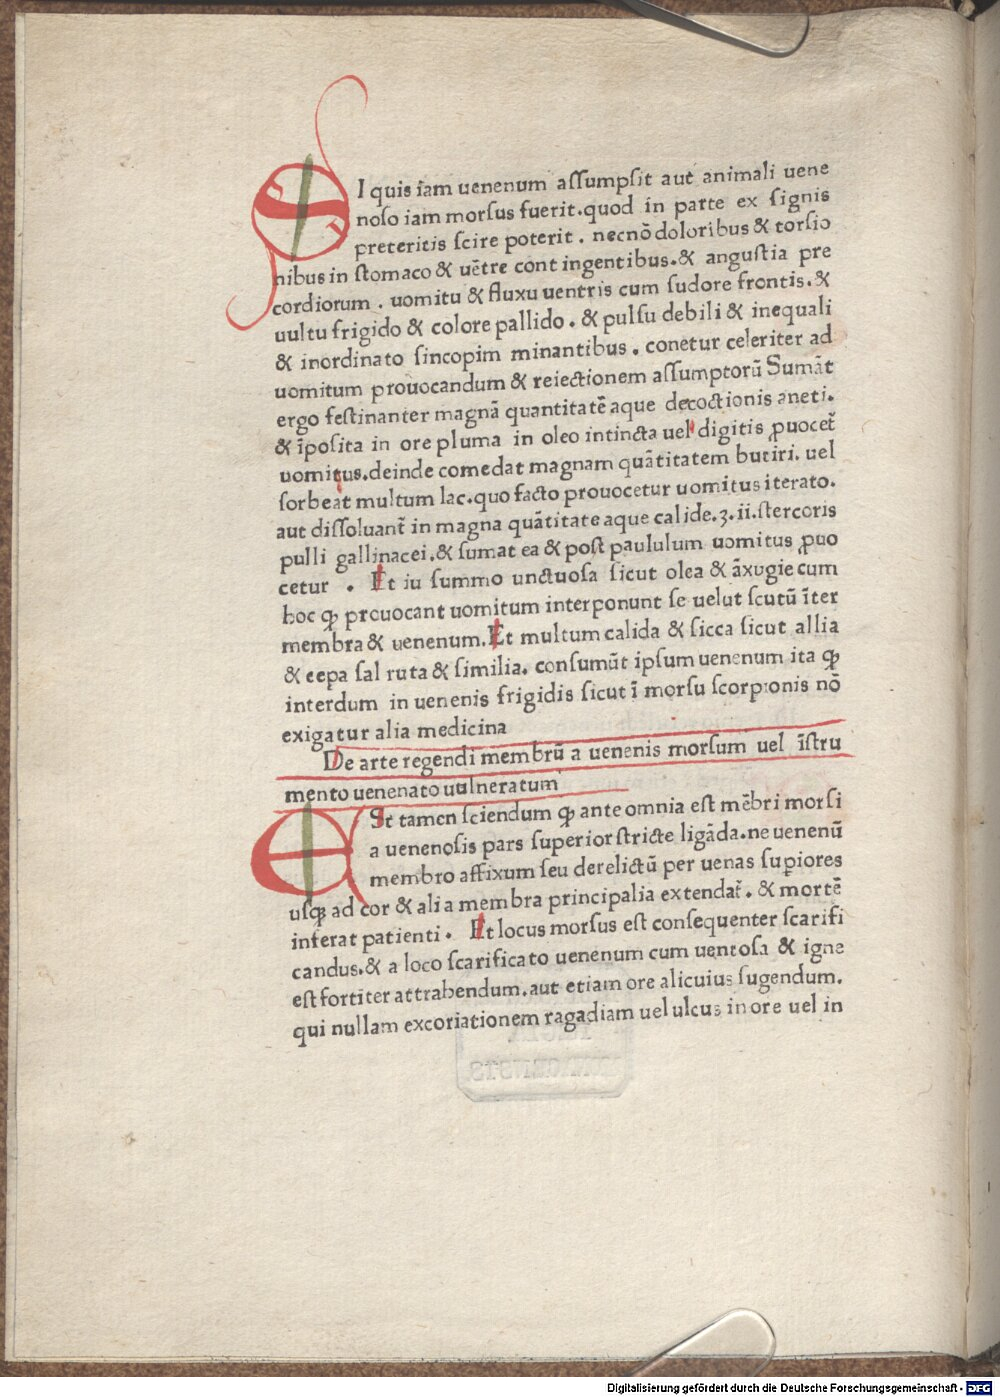 SI quis iam uenenum assumpsit aut animali uene
noso iam morsus fuerit.quod in parte ex signis
preteritis scire poterit . necnō doloribus & torsio
nibus in stomaco & uētre contingentibus.& angustia pre
cordiorum . uomitu & fluxu uentris cum sudore frontis.&
uultu frigido & colore pallido . & pulsu debili & inequali
& inordinato sincopim minantibus . conetur celeriter ad
uomitum prouocandum & reiectionem assumptorū Sumāt
ergo festinanter magnā quantitatē aque decoctionis aneti.
& īposita in ore pluma in oleo intincta uel digitis ꝓuocet̄
uomitus.deinde comedat magnam quātitatem butiri. uel
sorbeat multum lac.quo facto prouocetur uomitus iterato.
aut dissoluant̄ in magna quātitate aque calide.ʒ.ii.stercoris
pulli gallinacei.& sumat ea & post paululum uomitus ꝓuo
cetur . Et iu summo unctuosa sicut olea & āxugie cum
hoc ꝙ prouocant uomitum interponunt se uelut scutū īter
membra & uenenum.Et multum calida & sicca sicut allia
& cepa sal ruta & similia. consumūt ipsum uenenum ita ꝙ
interdum in uenenis frigidis sicut ī morsu scorpionis nō
exigatur alia medicina
De arte regendi membrū a uenenis morsum uel īstru
mento uenenato uulneratum
ESt tamen sciendum ꝙ ante omnia est mēbri morsi
a uenenosis pars superior stricte ligāda.ne uenenū
membro affixum seu derelictū per uenas supiores
usꝙ ad cor & alia membra principalia extendat̄. & mortē
inferat patienti . Et locus morsus est consequenter scarifi
candus.& a loco scarificato uenenum cum uentosa & igne
est fortiter attrahendum.aut etiam ore alicuius sugendum.
qui nullam excoriationem ragadiam uel ulcus in ore uel in
Digitalisierung gefördert durch die Deutsche Forschungsgemeinschaft - DFG